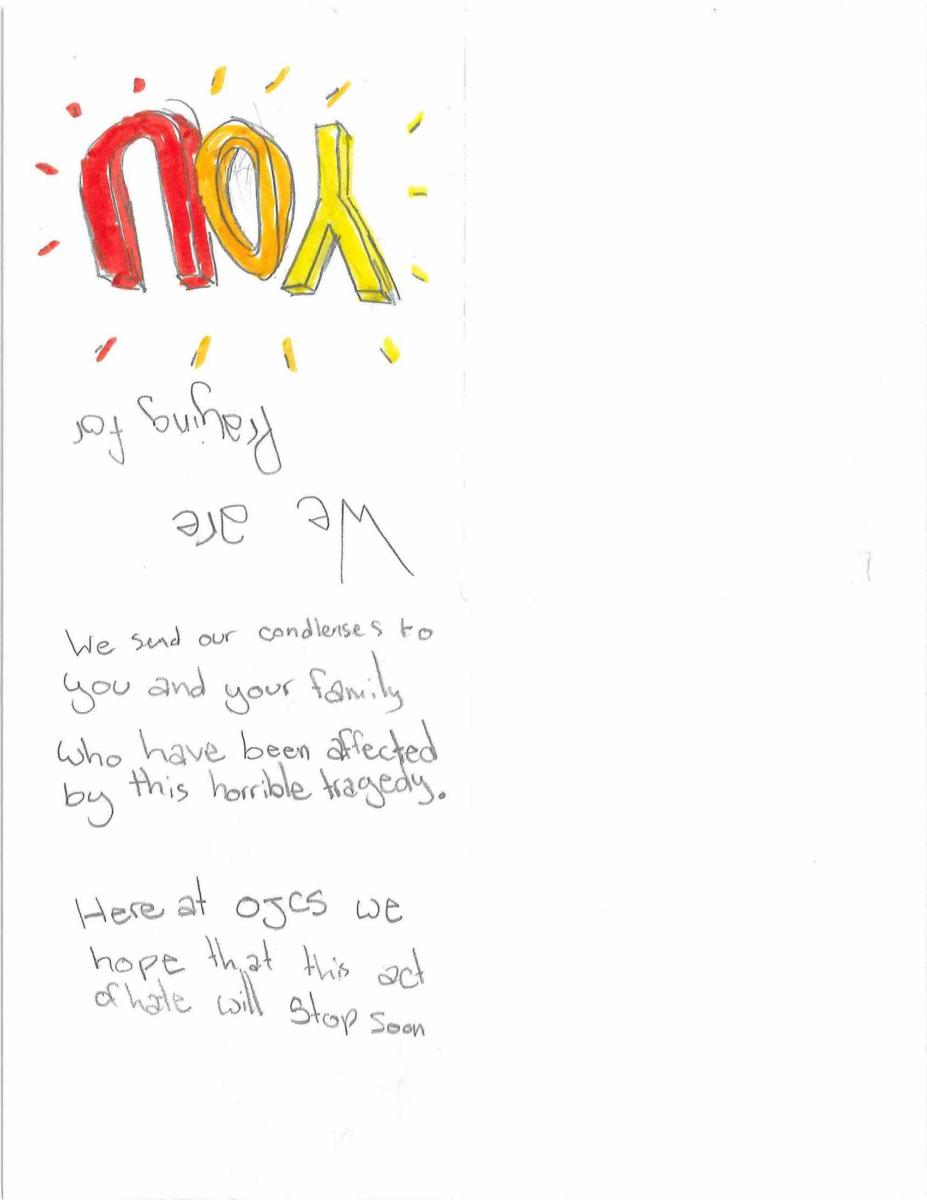 We are
Praying for
YOU
We send our condlenses to
you and your family
who have been affected
by this horrible tragedy.
Here at OJCS we
hope that this act
of hate will stop soon